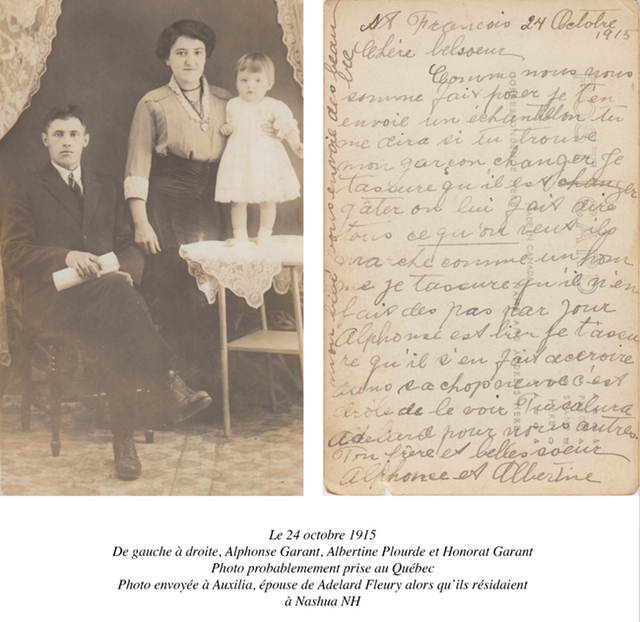 St Francois 24 Octobre
1915
Chère belsoeur
Comme nous nous
somme fait poser je t'en
envoie un echantillon tu
me dira si tu trouve
mon garçon changer je
t'assure qu'il est changer
gâter on lui fait dire
tous ce qu'on veut ils
marche comme un hom
me je t'assure qu'il n'en
fait des pas par jour
Alphonse est bien je t'assu
re qu'il s'en fait accroire
c'est
drôle de le voir Tu salura
Adelard pour nous autres.
Ton frère et belles soeur
Alphonse et Albertine
vous envoie des beau
bec
Le 24 octobre 1915
De gauche à droite, Alphonse Garant, Albertine Plourde et Honorat Garant
Photo probablemement prise au Québec
Photo envoyée à Auxilia, épouse de Adelard Fleury alors qu'ils résidaient
à Nashua NH